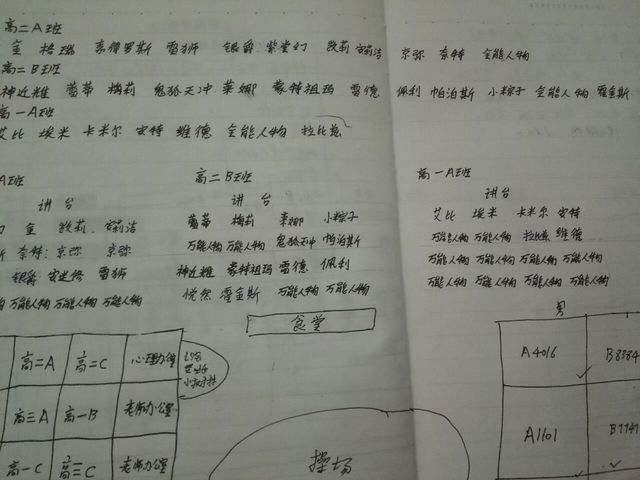 高二A班
金 格瑞 雷狮 银爵 紫堂幻 凯莉 安莉洁 京弥 奈特 全能人物
高二B班
神近耀 蕾蒂 梅莉 鬼狐天冲 莱娜 蒙特祖玛 雷德 佩利 帕洛斯 小粽子 全能人物 霍金斯
高一A班
艾比 埃米 卡米尔 安特 维德 全能人物
A班
讲台
幻 金 凯莉 安莉洁
奈特 京弥 京弥
银爵 安迷修 雷狮
万能人物 万能人物 万能人物
高二B班
讲台
蕾蒂 梅莉 莱娜 小粽子
万能人物 万能人物 鬼狐天冲 帕洛斯
神近耀 蒙特祖玛 雷德 佩利
恍然 霍金斯 万能人物 万能人物
高一A班
讲台
艾比 埃米 卡米尔 安特
万能人物 万能人物 维德
万能人物 万能人物 万能人物 万能人物
万能人物 万能人物 万能人物 万能人物
食堂
男
高二A 高二C 心理办公室
高三A 高一B 老师办公室
高一C 高三C 老师办公室
操场
A4016
A1101